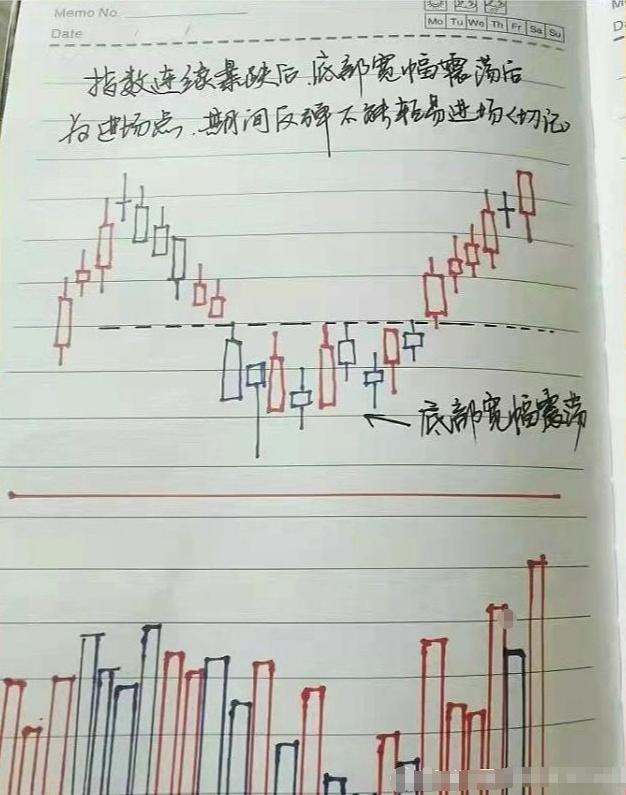 Memo No.
Mo Tu We Th Fr Sa Su
Date / /
指数连续暴跌后.底部宽幅震荡后
为进场点.期间反弹不能轻易进场(切记)
底部宽幅震荡